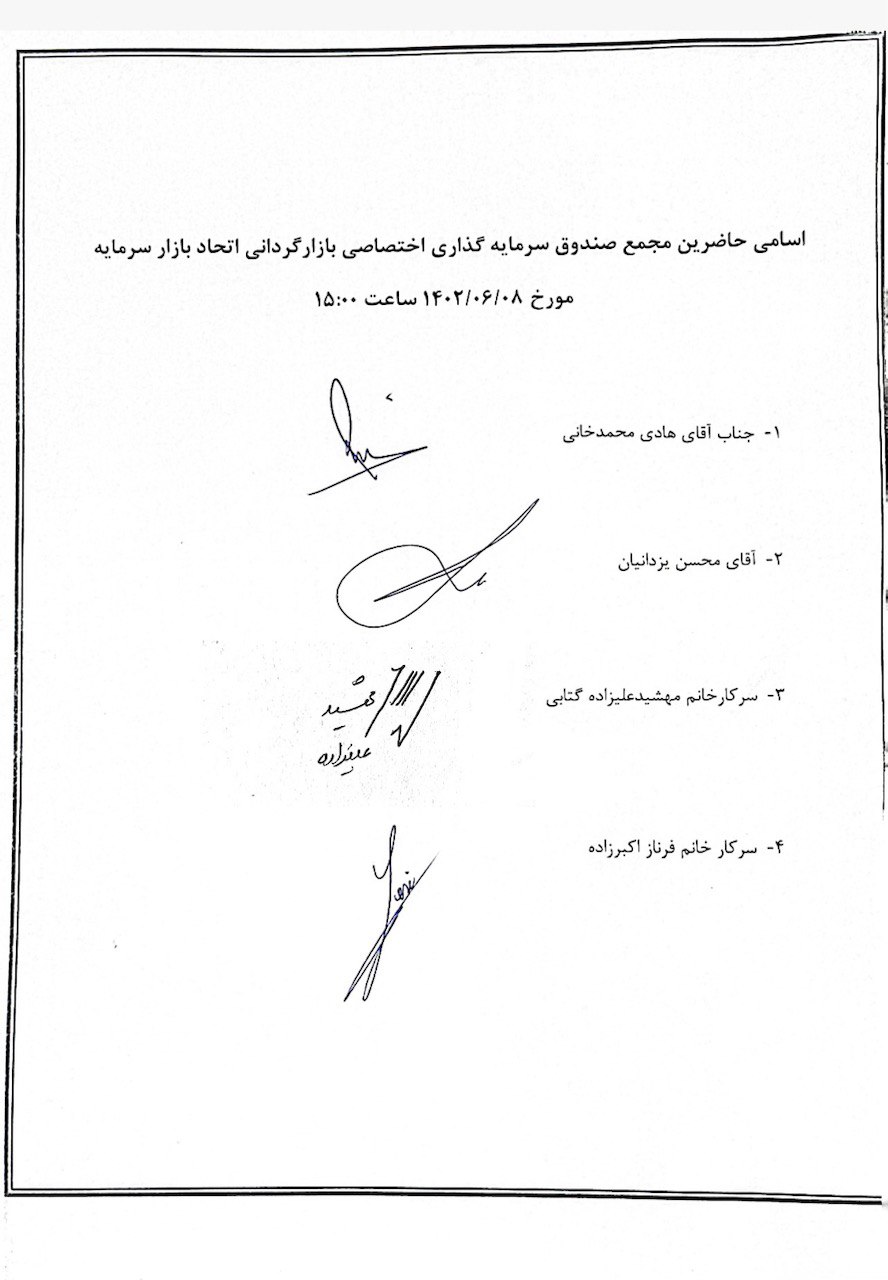 اسامی حاضرین مجمع صندوق سرمایه گذاری اختصاصی بازارگردانی اتحاد بازار سرمایه
مورخ ۱۴۰۲/۰۶/۰۸ ساعت ۱۵:۰۰
۱- جناب آقای هادی محمدخانی
۲- آقای محسن یزدانیان
۳- سرکارخانم مهشیدعلیزاده گتابی
مهشید
علیزاده
۴- سرکار خانم فرناز اکبرزاده